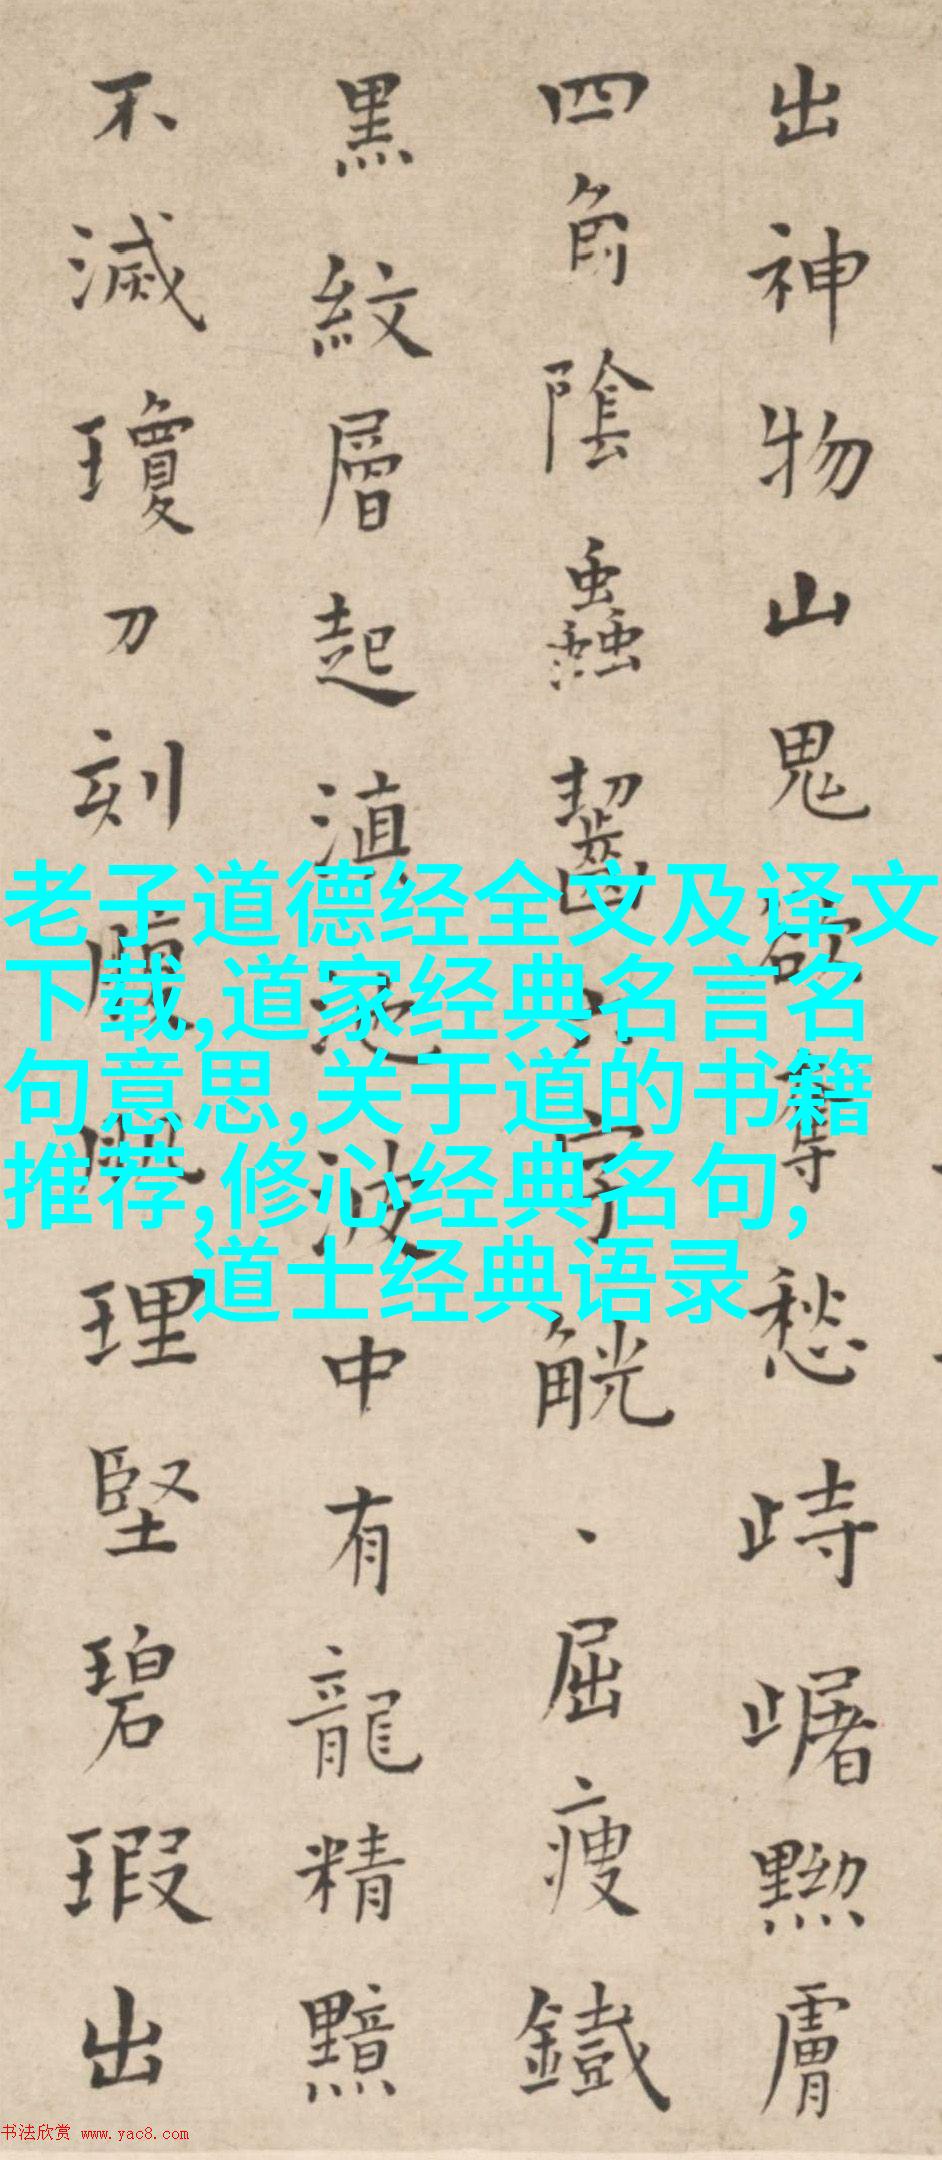 出神物山鬼欲奪愁峙黝膚
四角陰蟲齧字觥、屈瘦鐵
黑紋層起滇池波中有龍精黯
不滅瓊刀刻膩肌理堅碧瑕出
老子道德经全文及译文
下载,道家经典名言名
句意思,关于道的书籍
推荐,修心经典名句,
道士经典语录
书法欣赏 www.yac8.com